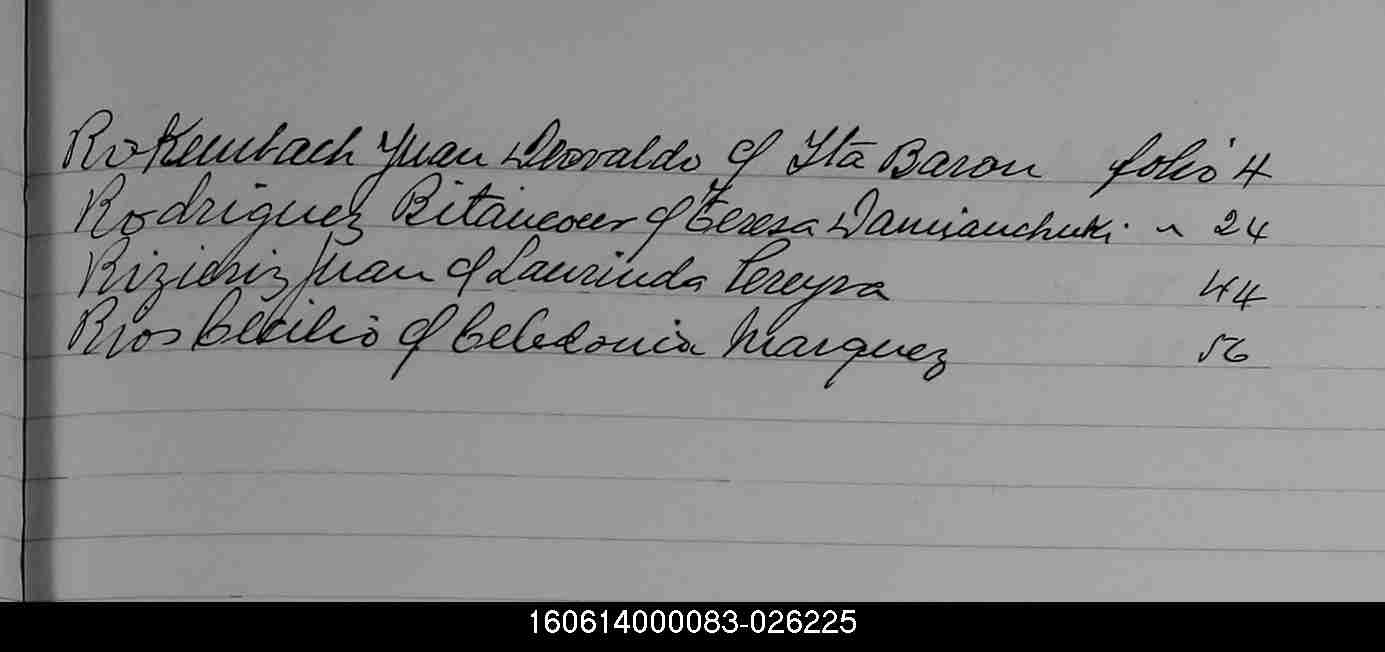 Rokembach Juan Deovaldo c/ Ita Baron folio 4
Rodriguez Bitancour c/ Teresa Damianchuki " 24
Rizieriz Juan c/ Laurinda Pereyra 44
Rios Cecilio c/ Celedonia Marquez 56
160614000083-026225